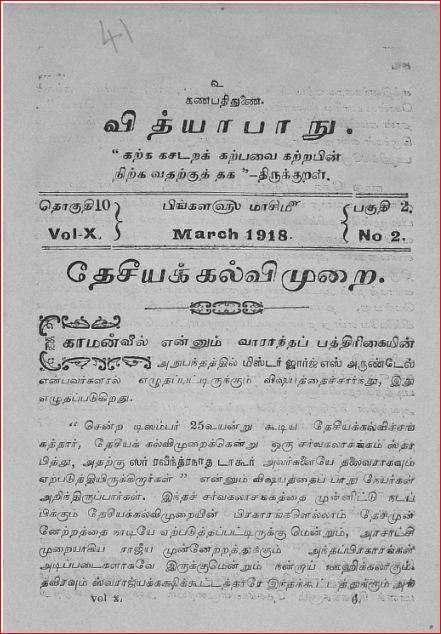 41
உ
கணபதிதுணை.
வித்யாபாநு.
“கற்க கசடறக் கற்பவை கற்றபின்
நிற்க வதற்குத் தக”–திருக்குறள்.
தொகுதி10 பிங்கள௵ மாசி௴ பகுதி 2.
Vol-X. March 1918. No 2.
தேசீயக்கல்விமுறை.
காமன்வீல் என்னும் வாராந்தப் பத்திரிகையின்
அநுபந்தத்தில் மிஸ்டர் ஜார்ஜ் எஸ் அருண்டேல்
என்பவர்களால் எழுதப்பட்டிருக்கும் விஷயத்தைச்சார்ந்து, இது
எழுதப்படுகிறது.
“சென்ற டிஸம்பர் 25உயன்று கூடிய தேசியக்கல்விச்சங்
கத்தார், தேசியக் கல்விமுறைக்கென்று ஒரு சர்வகலாசங்கம் ஸ்தா
பித்து, அதற்கு ஸர் ரவீந்த்ரநாத டாகூர் அவர்களையே தலைவராகவும்
ஏற்படுத்தியிருக்கிறார்கள்” என்னும் விஷயத்தைப் பாறு நேயர்கள்
அறிந்திருப்பார்கள். இந்தச் சர்வகலாசங்கத்தை முன்னிட்டு நடப்
பிக்கும் தேசியக்கல்விமுறையின் பிரகாரங்களெல்லாம் தேசமுன்
னேற்றத்தை நாடியே ஏற்படுத்தப்பட்டிருக்கு மென்றும், அரசாட்சி
முறையாகிய ராஜீய முன்னேறறத்துக்கும் அந்தப்பிரகாரங்கள்
அடிப்படைகளாகவே இருக்குமென்றும் நன்றாய் ஊஹிக்கலாகும்.
தவிரவும் ஸ்வராஜ்யக்கக்ஷிக்கூட்டத்தாரே இந்தக்கூட்டத்துக்கும்
vol x. 6.